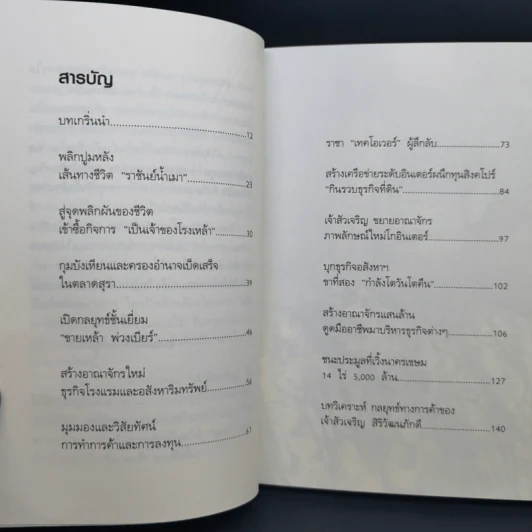 สารบัญ
บทเกริ่นนำ 12
พลิกปูมหลัง
เส้นทางชีวิต "ราชันย์น้ำเมา" 23
สู่จุดพลิกผันของชีวิต
เข้าซื้อกิจการ "เป็นเจ้าของโรงเหล้า" 30
กุมบังเหียนและครองอำนาจเบ็ดเสร็จ
ในตลาดสุรา 39
เปิดกลยุทธ์ชั้นเยี่ยม
"ขายเหล้า พ่วงเบียร์" 46
สร้างอาณาจักรใหม่
ธุรกิจโรงแรมและอสังหาริมทรัพย์ 56
มุมมองและวิสัยทัศน์
การทำการค้าและการลงทุน 67
ราชา "เทคโอเวอร์" ผู้ลึกลับ 73
สร้างเครือข่ายระดับอินเตอร์ผนึกทุนสิงคโปร์
"กินรวบธุรกิจที่ดิน" 84
เจ้าสัวเจริญ ขยายอาณาจักร
ภาพลักษณ์ใหม่โกอินเตอร์ 97
บุกธุรกิจอสังหาฯ
ขาที่สอง "กำลังโตวันโตคืน" 102
สร้างอาณาจักรแสนล้าน
ดูดมืออาชีพมาบริหารธุรกิจต่างๆ 106
ชนะประมูลที่เวิ้งนาครเขษม
14 ไร่ 5,000 ล้าน 127
บทวิเคราะห์ กลยุทธ์ทางการค้าของ
เจ้าสัวเจริญ สิริวัฒนภักดี 140